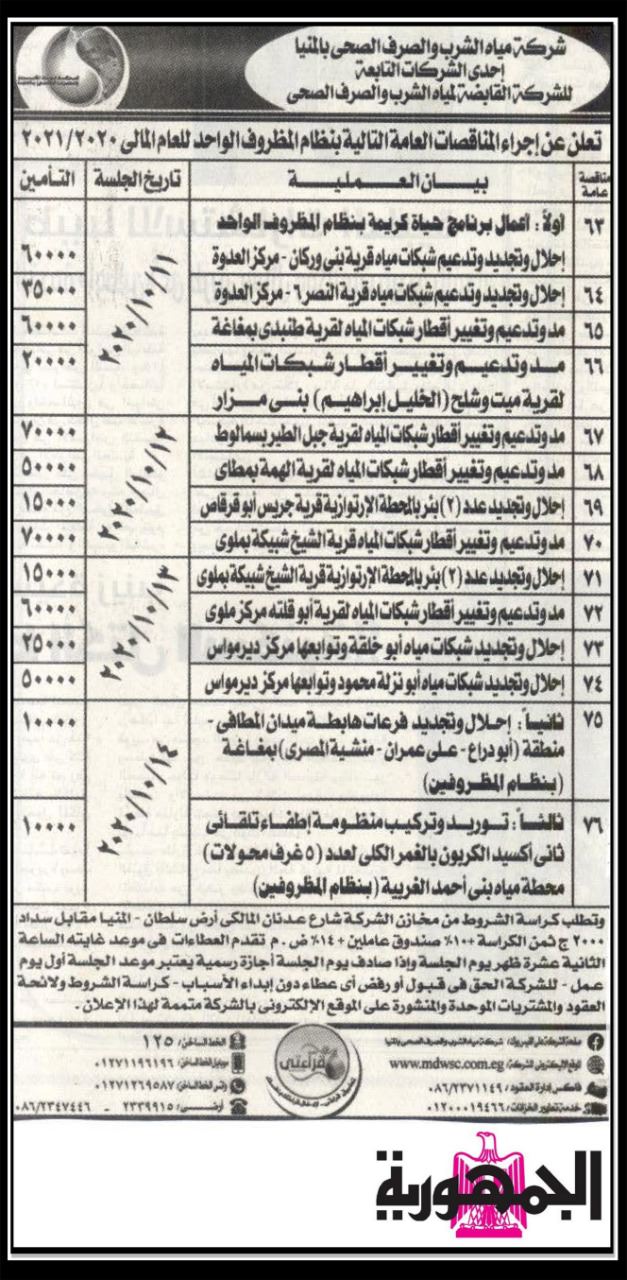 شركة مياه الشرب والصرف الصحى بالمنيا
إحدى الشركات التابعة
للشركة القابضة لمياه الشرب والصرف الصحى
تعلن عن إجراء المناقصات العامة التالية بنظام المظروف الواحد للعام المالى ٢٠٢١/٢٠٢٠
مناقصة عامة
بيان العملية
تاريخ الجلسة
التأمين
٦٣ أولاً: أعمال برنامج حياة كريمة بنظام المظروف الواحد
إحلال وتجديد وتدعيم شبكات مياه قرية بنى وركان - مركز العدوة ٦٠٠٠٠
٢٠٢٠/١٠/١١
٦٤ إحلال وتجديد وتدعيم شبكات مياه قرية النصر ٦ - مركز العدوة ٣٥٠٠٠
٦٥ مد وتدعيم وتغيير أقطار شبكات المياه لقرية طنبدى بمغاغة ٦٠٠٠٠
٦٦ مد وتدعيم وتغيير أقطار شبكات المياه ٢٠٠٠٠
لقرية ميت وشلح (الخليل إبراهيم) بنى مزار
٦٧ مد وتدعيم وتغيير أقطار شبكات المياه لقرية جبل الطير بسمالوط ٧٠٠٠٠
٢٠٢٠/١٠/١٢
٦٨ مد وتدعيم وتغيير أقطار شبكات المياه لقرية الهمة بمطاى ٥٠٠٠٠
٦٩ إحلال وتجديد عدد (٢) بئر بالمحطة الإرتوازية قرية جريس أبو قرقاص ١٥٠٠٠
٧٠ مد وتدعيم وتغيير أقطار شبكات المياه قرية الشيخ شبيكة بملوى ٧٠٠٠٠
٧١ إحلال وتجديد عدد (٢) بئر بالمحطة الإرتوازية قرية الشيخ شبيكة بملوى ١٥٠٠٠
٢٠٢٠/١٠/١٣
٧٢ مد وتدعيم وتغيير أقطار شبكات المياه لقرية أبو قلته مركز ملوى ٦٠٠٠٠
٧٣ إحلال وتجديد شبكات مياه أبو خلقة وتوابعها مركز ديرمواس ٢٥٠٠٠
٧٤ إحلال وتجديد شبكات مياه أبو نزلة محمود وتوابعها مركز ديرمواس ٥٠٠٠٠
٧٥ ثانياً: إحلال وتجديد فرعات هابطة ميدان المطافى - ١٠٠٠٠
منطقة (أبو دراع - على عمران - منشية المصرى) بمغاغة
(بنظام المظروفين)
٢٠٢٠/١٠/١٤
٧٦ ثالثاً: توريد وتركيب منظومة إطفاء تلقائى ١٠٠٠٠
ثانى أكسيد الكربون بالغمر الكلى لعدد (٥ غرف محولات)
محطة مياه بنى أحمد الغربية (بنظام المظروفين)
وتطلب كراسة الشروط من مخازن الشركة شارع عدنان المالكى أرض سلطان - المنيا مقابل سداد
٢٠٠٠ ج ثمن الكراسة + ١٠٪ صندوق عاملين + ١٤٪ ض . م تقدم العطاءات فى موعد غايته الساعة
الثانية عشرة ظهر يوم الجلسة وإذا صادف يوم الجلسة أجازة رسمية يعتبر موعد الجلسة أول يوم
عمل - للشركة الحق فى قبول أو رفض أى عطاء دون إبداء الأسباب - كراسة الشروط ولائحة
العقود والمشتريات الموحدة والمنشورة على الموقع الإلكترونى بالشركة متممة لهذا الإعلان .
صفحة الشركة على الفيسبوك: شركة مياه الشرب والصرف الصحى بالمنيا
الموقع الإليكترونى للشركة: www.mdwsc.com.eg
فاكس إدارة العقود: ٠٨٦/٢٣٧١١٤٩
خدمة تطهير الخزانات: ٠١٢٠٠٠١٩٤٦٦
قراءتى
الخط الساخن: ١٢٥
موبايل الخط الساخن: ٠١٢٧١١٩٦١٩٦
واتس الخط الساخن: ٠١٢٧١٢٦٩٥٨٧
أرضى: ٢٣٣٩٩١٥ - ٠٨٦/٢٣٤٧٤٤٦
الجمهورية